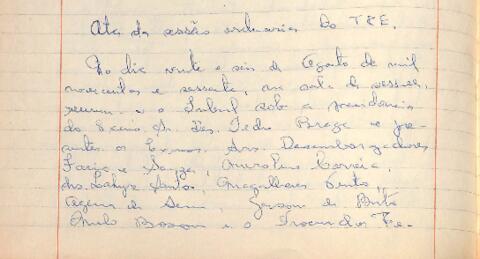 Ata da sessão ordinaria do TRE.
No dia vinte e seis de Agosto de mil
novecentos e sessenta, na sala de sessões,
reuniu-se o Tribunal sob a presidencia
do Exmo Sr. Des. Pedro Braga e pre-
sentes os Exmos. Srs. Desembargadores
Faria e Souza, Correia,
drs. Santos, Magalhães Pinto,
de Sena, Gerson de
e o Procurador Re-